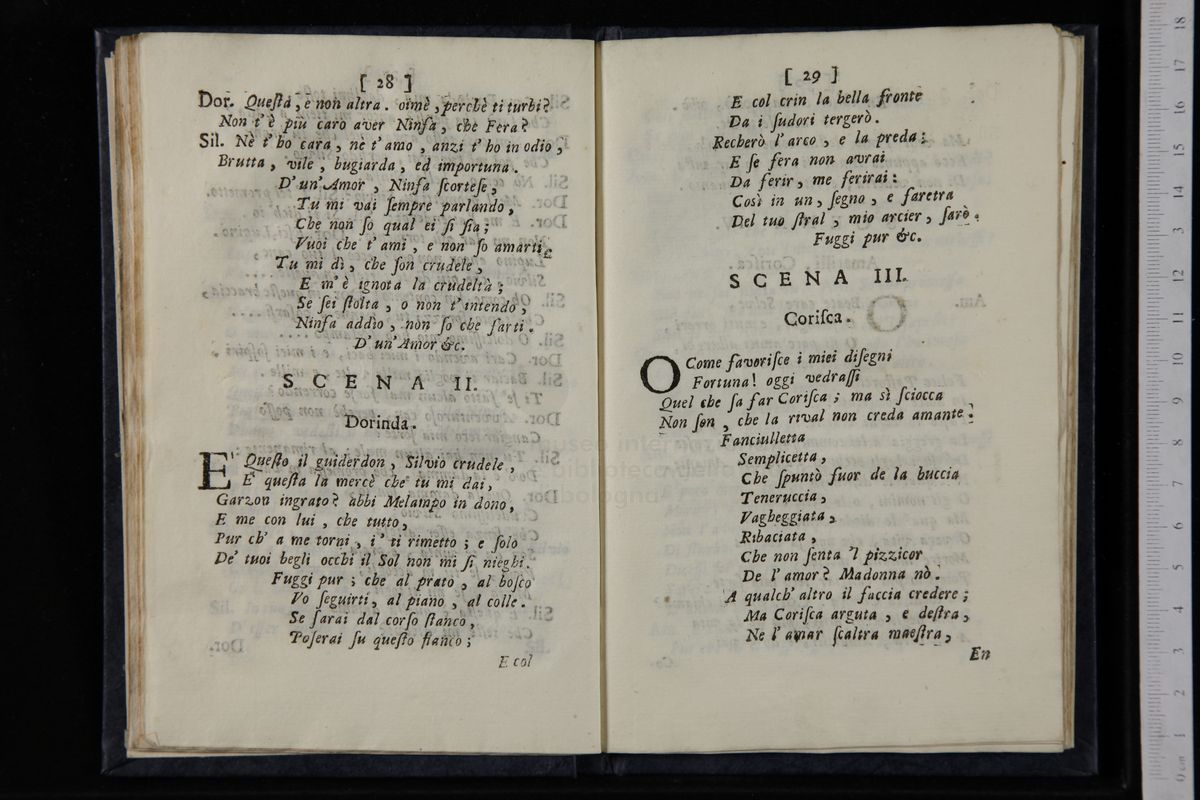 [ 28 ]
Dor. Queſta, e non altra. oimè, perchè ti turbi?
Non t'è più caro aver Ninfa, che Fera?
Sil. Nè t'ho cara, nè t'amo, anzi t'ho in odio,
Brutta, vile, bugiarda, ed importuna.
D'un'Amor, Ninfa ſcorteſe,
Tu mi vai ſempre parlando,
Che non ſo qual ei ſi ſia;
Vuoi che t'ami, e non ſo amarti.
Tu mi dì, che ſon crudele,
E m'è ignota la crudeltà;
Se ſei ſtolta, o non t'intendo,
Ninfa addìo, non ſo che farti.
D'un'Amor &c.
SCENA II.
Dorinda.
E' Queſto il guiderdon, Silvio crudele,
E' queſta la mercè che tu mi dai,
Garzon ingrato? abbi Melampo in dono,
E me con lui, che tutto,
Pur ch' a me torni, i' ti rimetto; e ſolo
De' tuoi begli occhi il Sol non mi ſi nieghi.
Fuggi pur; che al prato, al boſco
Vo ſeguirti, al piano, al colle.
Se ſarai dal corſo ſtanco,
Poſerai ſu queſto fianco;
E col
[ 29 ]
E col crin la bella fronte
Da i ſudori tergerò.
Recherò l'arco, e la preda;
E ſe fera non avrai
Da ferir, me ferirai:
Così in un, ſegno, e faretra
Del tuo ſtral, mio arcier, ſarò.
Fuggi pur &c.
SCENA III.
Coriſca.
O Come favoriſce i miei diſegni
Fortuna! oggi vedraſſi
Quel che ſa far Coriſca; ma sì ſciocca
Non ſon, che la rival non creda amante:
Fanciulletta
Semplicetta,
Che ſpuntò fuor de la buccia
Teneruccia,
Vagheggiata,
Ribaciata,
Che non ſenta 'l pizzicor
De l'amor? Madonna nò.
A qualch'altro il faccia credere;
Ma Coriſca arguta, e deſtra,
Ne l'amar ſcaltra maeſtra,
En